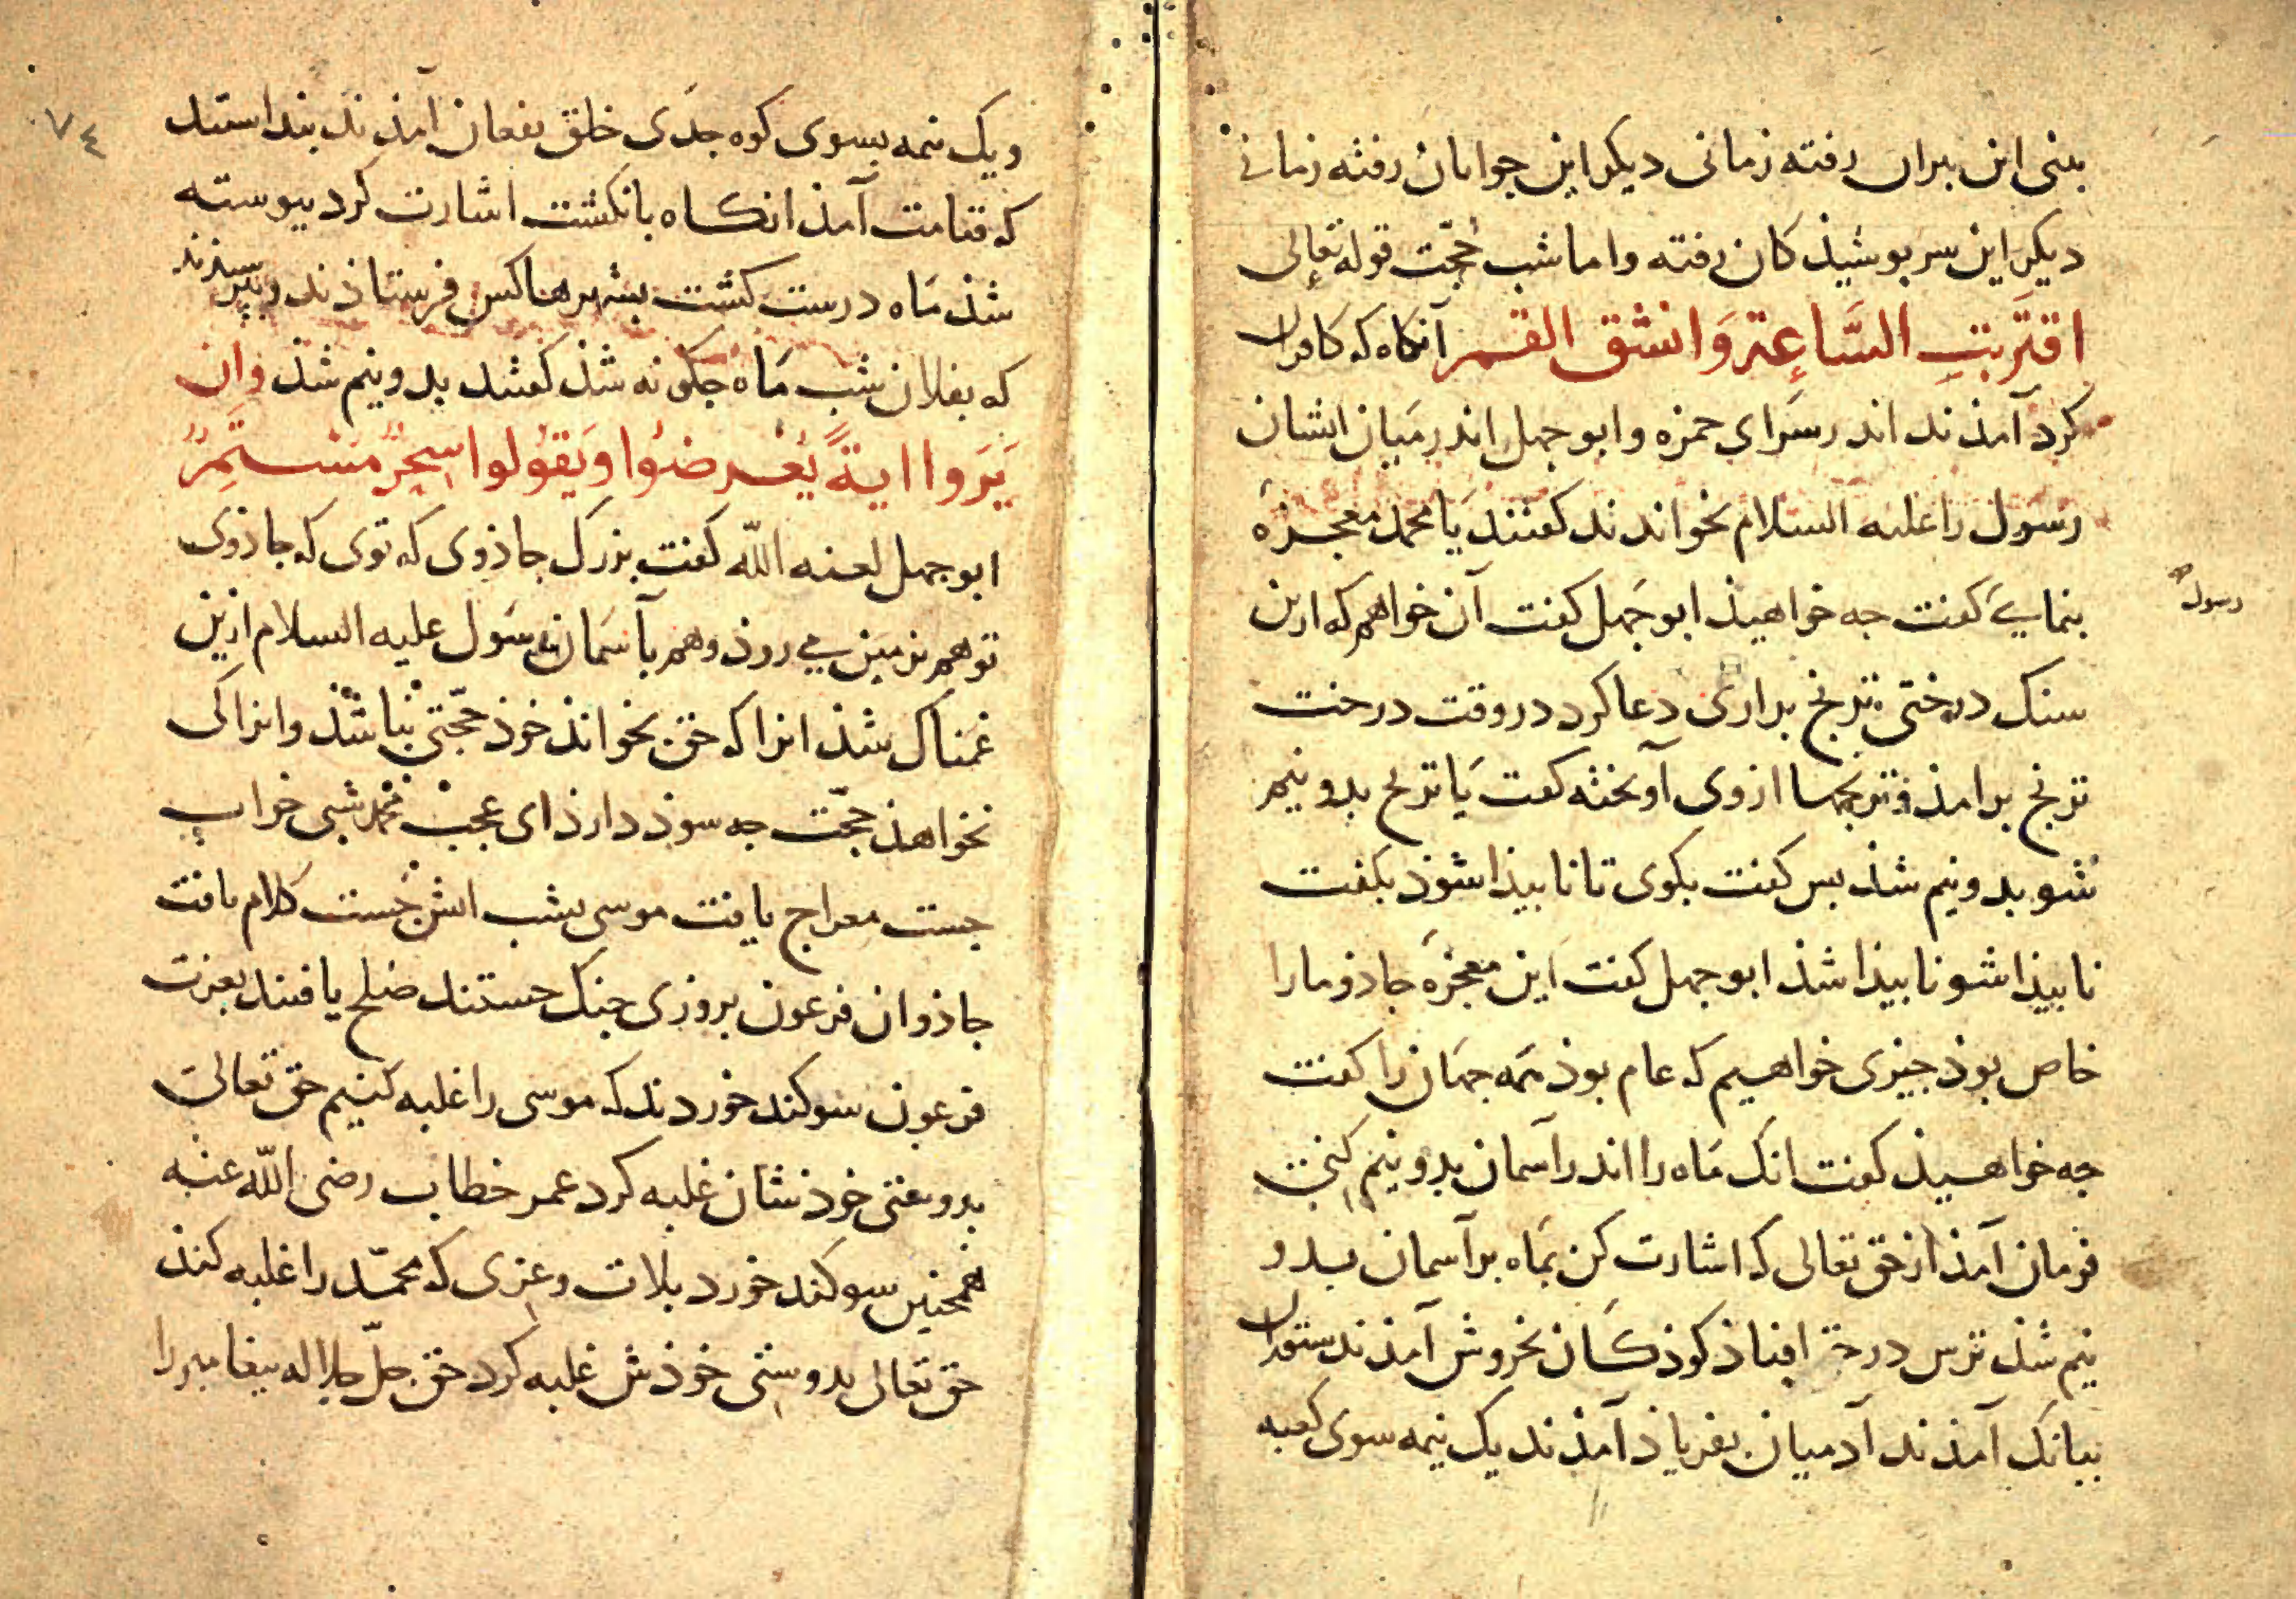 بینی این بیران رفته زمانی دیکر این جوانان رفته زمانی
دیکر این سر بوشیذکان رفته واما شب حجّت قوله تعالی
اقتَرَبَتِ السَّاعة وَانشق القمر آنکاه که کافران
کرد آمذند اندر سَرای حمزه وابوجهل اندر میان ایشان
رسول را علیه السلام بخواندند کفتند یا محمد معجزهٔ
بنمای کفت جه خواهیذ ابوجهل کفت آن خواهم که ازین
رسول
سنک درختی ترنج براری دعا کرد در وقت درخت
ترنج برامذ و ترنجها ازوی آویخته کفت یا ترنج بدو نیم
شو بدو نیم شذ بس کفت بکوی تا نابیذا شوذ بکفت
نابیذا شو نابیذا شذ ابوجهل کفت این معجزهٔ جاذو مارا
خاص بوذ جیزی خواهیم که عام بوذ همه جهان را کفت
جه خواهیذ کفت انک مَاه را اندر آسمان بدو نیم کنی
فرمان آمذ از حق تعالی که اشارت کن بمَاه بر آسمان بدو
نیم شذ ترس در خلق افتاذ کوذکان بخروش آمذند ستوران
ببانک آمذند آدمیان بفریاذ آمذند یک نیمه سوی کعبه
٧٤
ویک نیمه بسوی کوه جدی خلق بفغان آمذند بنداستند
که قیامت آمذ انکاه بانکشت اشارت کرد بیوسته
شذ مَاه درست کشت بشهرها کس فرستاذند و بپرسیذند
که بفلان شب مَاه جکونه شذ کفتند بدو نیم شذ وَان
یَرَوا ایةً یُعْرضُوا وَیَقُولوا سِحرٌ مسْتمِرٌّ
ابوجهل لعنه اللّه کفت بزرک جاذوی که توی که جاذوی
تو هم بزمین می روذ وهم بآسمان رسول علیه السلام ازین
غمناک شذ انرا که حق بخواند خوذ حجّتی نباشذ وانرا کی
نخواهذ حجّت جه سوذ دارذ ای عجب محمد شبی خواب
جست معراج یافت موسی بشب اتش جست کلام یافت
جاذوان فرعون بروزی جنک جستند صلح یافتند بعزت
فرعون سوکند خوردند که موسی را غلبه کنیم حق تعالی
بدوستی خوذشان غلبه کرد عمر خطاب رضی اللّه عنه
همجنین سوکند خورد بلات وعزی که محمّد را غلبه کند
حق تعالی بدوستی خوذش غلبه کرد حق جلّ جلاله بیغامبر را